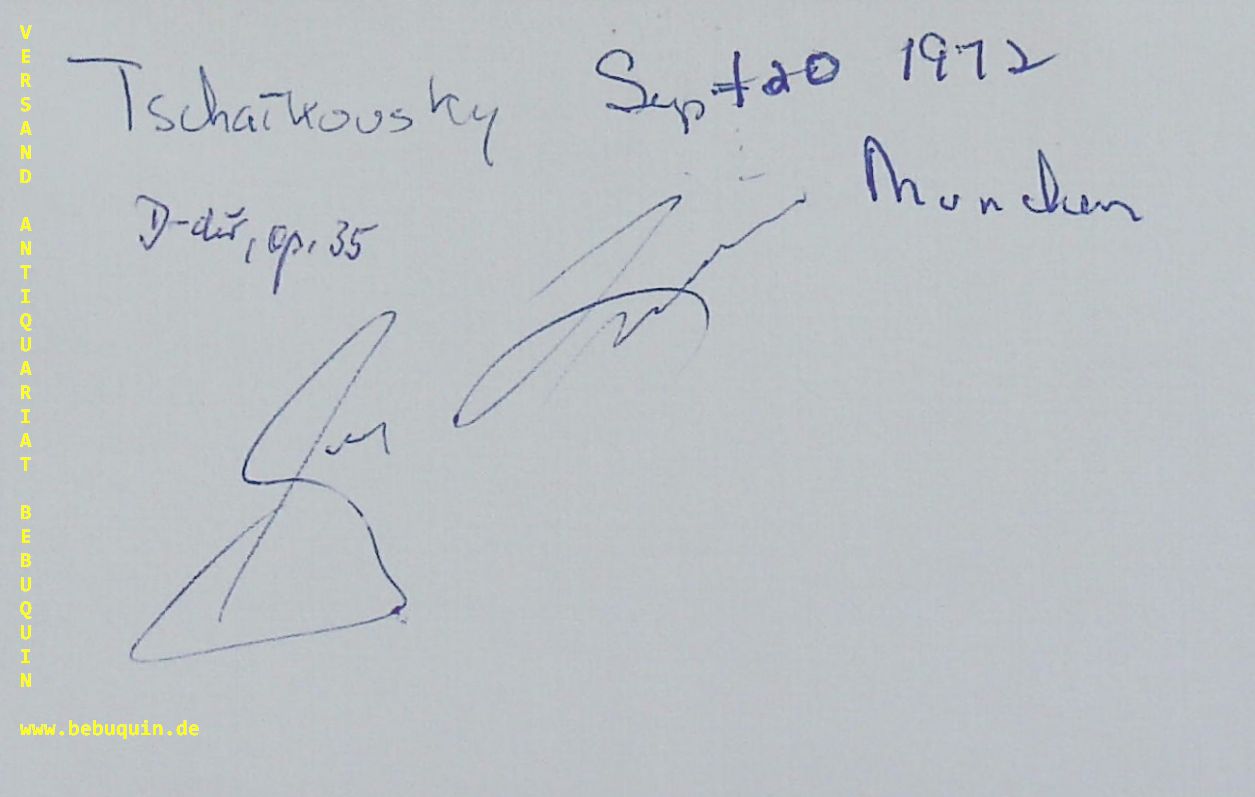 Tschaikovsky Sept 20 1972
München
D-dur, op. 35
VERSAND ANTIQUARIAT BEBUQUIN
www.bebuquin.de